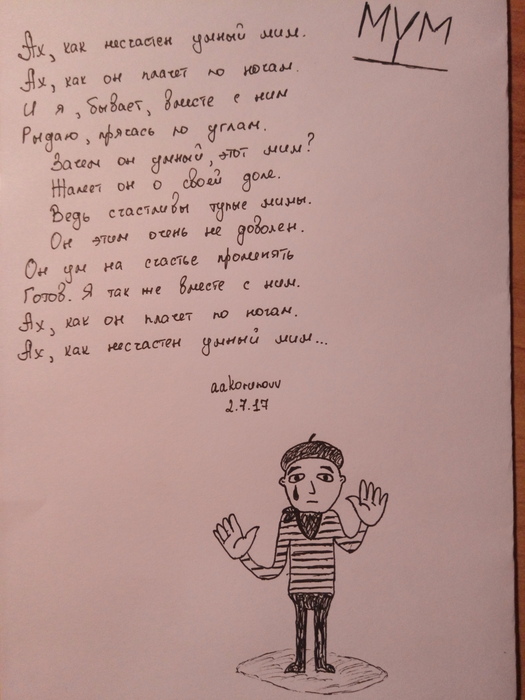 МУМ
Ах, как несчастен умный мим.
Ах, как он плачет по ночам.
И я, бывает, вместе с ним
Рыдаю, прячась по углам.
Зачем он умный, этот мим?
Жалеет он о своей доле.
Ведь счастливы тупые мимы.
Он этим очень не доволен.
Он ум на счастье променять
Готов. Я так же вместе с ним.
Ах, как он плачет по ночам.
Ах, как несчастен умный мим...
aakorunovv
2.7.17